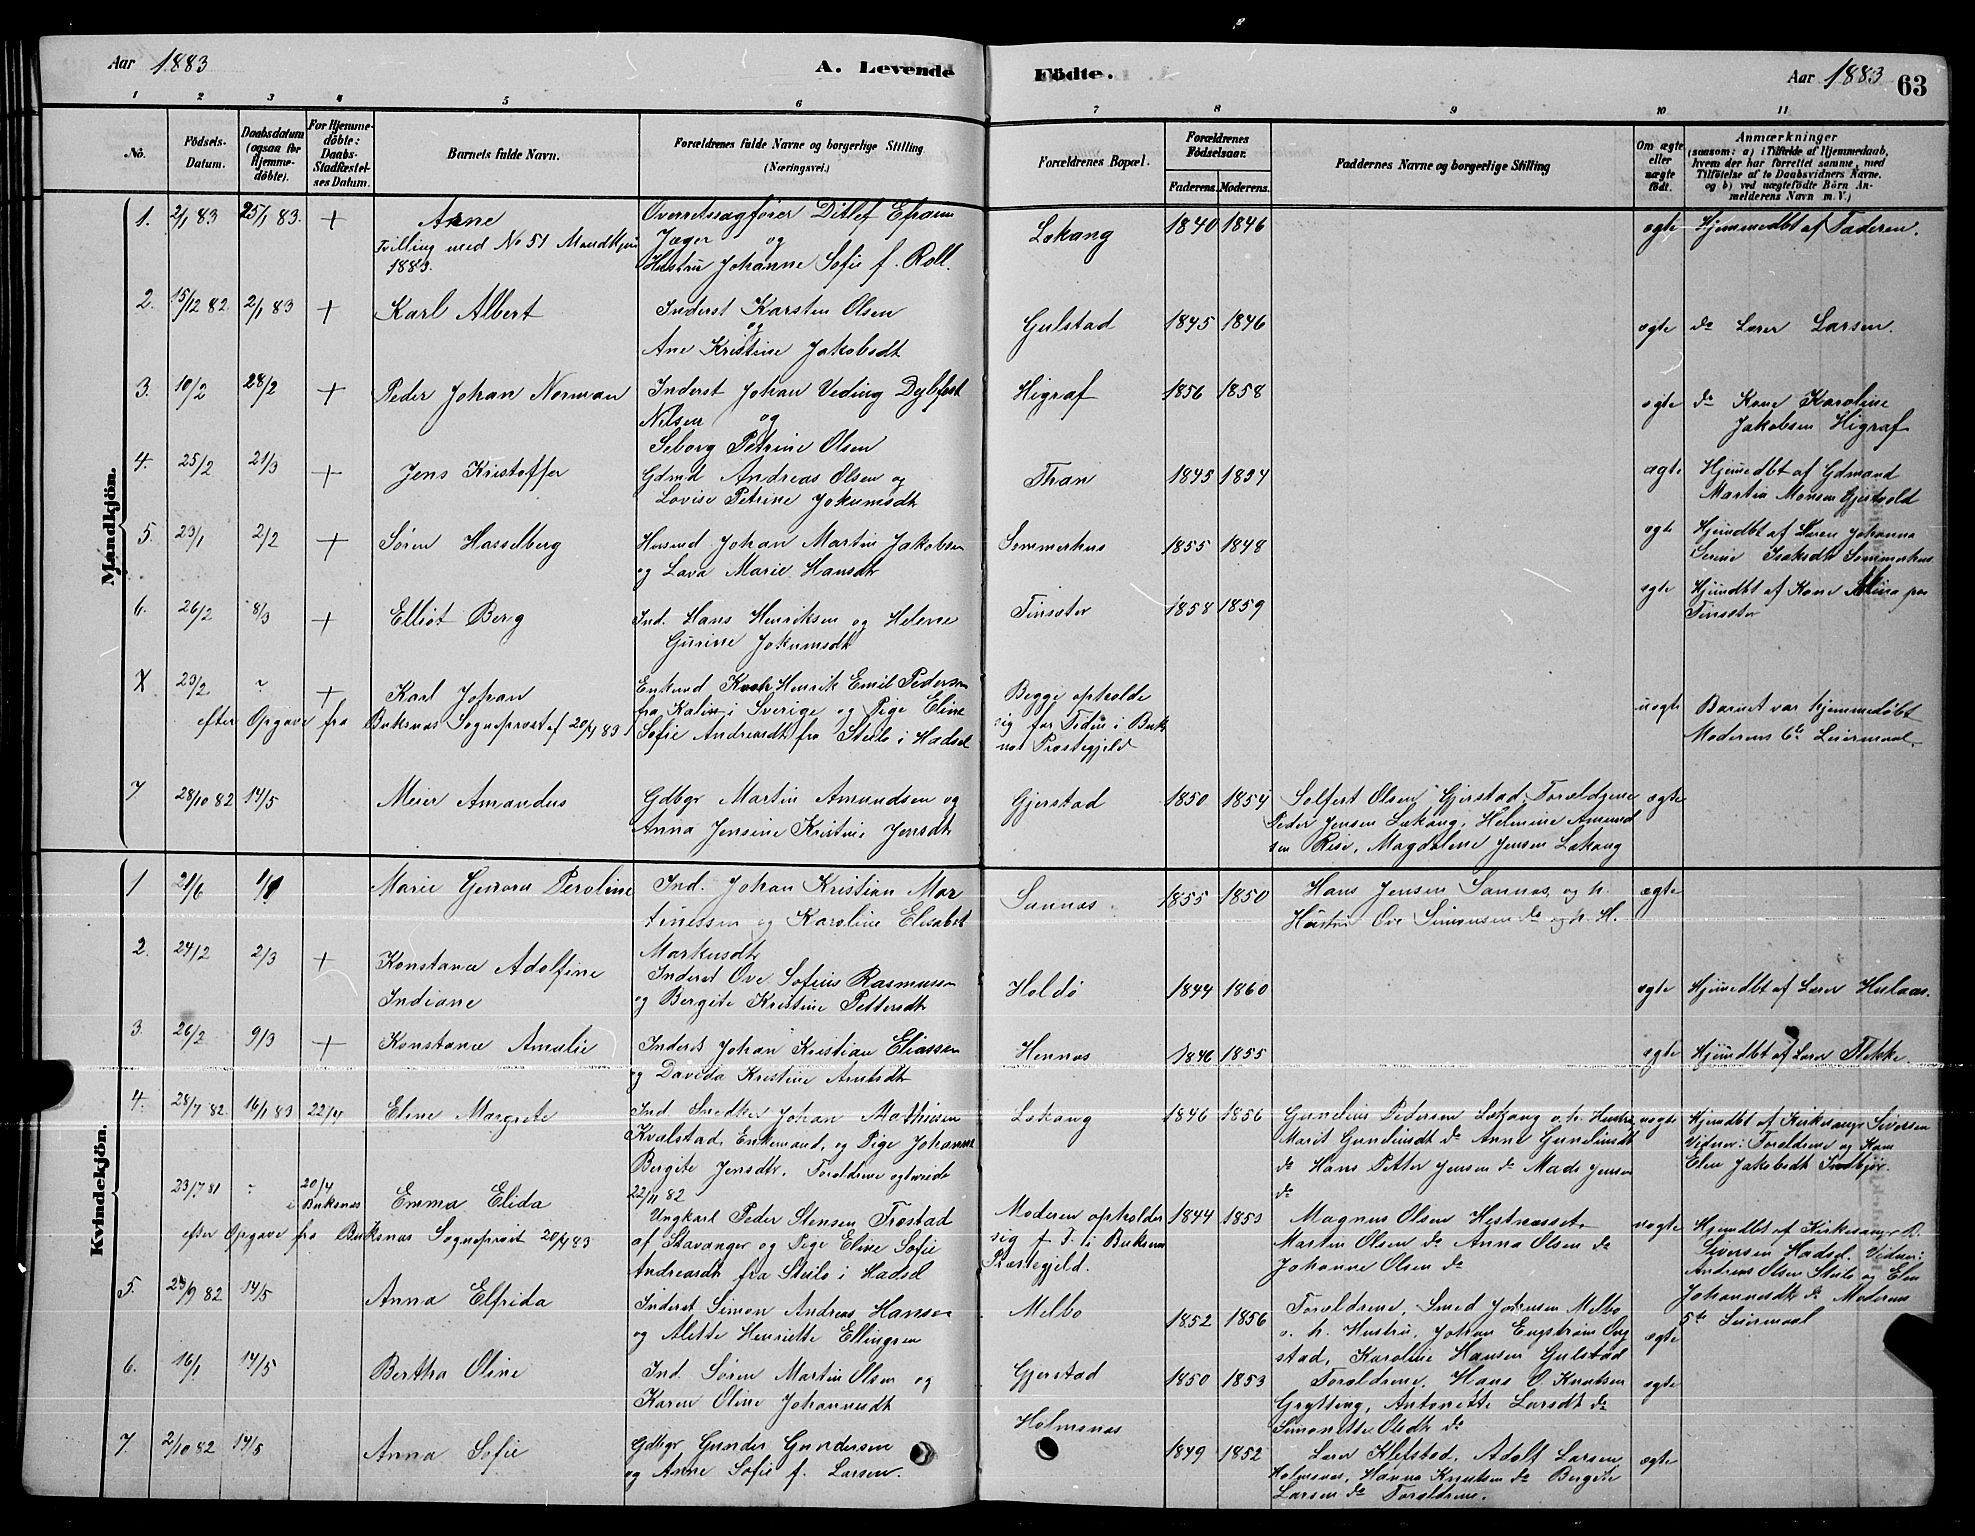 Aar 1883 A. Levende Födte. Aar 1883 63
1 2 3 4 5 6 7 8 9 10 11
No.
Födsels-
Datum.
Daabsdatum
(ogsaa for
Hjemme-
döbte).
For Hjemme-
döbte:
Daabs-
Stadfæstel-
ses Datum.
Barnets fulde Navn.
Forældrenes fulde Navne og borgerlige Stilling
(Næringsvei.)
Forældrenes Bopæl.
Forældrenes
Födselsaar.
Faderens. Moderens.
Faddernes Navne og borgerlige Stilling
Om ægte
eller
uægte
födt.
Anmærkninger
(saasom: a) i Tilfælde af Hjemmedaab,
hvem der har forrettet samme, med
Tilföielse af to Daabsvidners Navne.
og b) ved uægtefödte Börn An-
melderens Navn m. V.)
Mandkjön.
1. 2/1 83 25/1 83. + Arne
Tvilling med No 51 Mandkjøn
1883.
Overretssagfører Ditlef Efraim
Jæger og
Hustru Johanne Sofie f. Roll.
Lekang 1840 1846 ægte Hjemmedbt af Faderen.
2. 15/12 82 2/1 83 + Karl Albert
Inderst Karsten Olsen
og
Ane Kristine Jakobsdt
Gulstad 1845 1846 ægte do Lærer Larsen.
3. 10/2 28/2 + Peder Johan Norman
Inderst Johan Veding Dybfest
Nilsen og
Seborg Petrine Olsen
Higraf 1856 1858 ægte do Kone Karoline
Jakobsen Higraf
4. 25/2 21/3 + Jens Kristoffer
Gdmd Andreas Olsen og
Lovise Petrine Jokumsdt
Thran 1845 1854 ægte Hjemedbt af Gdmand
Martin Monsen Gjerstvold
5. 23/1 2/2 + Søren Hasselberg
Husmd Johan Martin Jakobsen
og Lava Marie Hansdt
Sommerhus 1855 1848 ægte Hjemdbt af Læren Johanna
Serine Isaksdt Sommerhus.
6. 26/2 8/3 + Elliot Berg
Ind. Hans Henriksen og Helene
Gurine Jokumsdt
Finsæter 1858 1859 ægte Hjemdbt af Kone Alina paa
Finsæter
X 23/2 + Karl Johan
efter Opgave fra Buksnæs Sogneprest af 20/4 83
Enkemd Henrik Emil Pedersen
fra Kalix i Sverige og Pige Eline
Sofie Andreasdt fra Steilo i Hadsel
Begge opholde
sig for Tiden i Buk
næs Præstegjeld
uægte Barnet var hjemmedøbt
Moderens 6te Leiermaal.
7 28/10 82 14/5 Meier Amandus
Gdbgr Martin Amundsen og
Anna Jensine Kristine Jensdt
Gjerstad 1850 1854 Solfert Olsen Gjerstad, Forældrene
Peder Jensen Lekang, Helmine Amund
sen Rise, Magdalene Jensen Lekang
ægte
Kvindekjön.
1 21/6 Marie Genora Peroline
Ind. Johan Kristian Mar
tinussen og Karoline Elisabet
Markusdt
Sannæs 1855 1850 Hans Jensen Sannæs og h.
Hustru Ove Simonsen do og h. H.
ægte
2. 24/2 2/3 + Konstance Adolfine
Indiane
Inderst Ove Sofius Rasmussen
og Bergite Kristine Pettersdt
Holdö 1844 1860 ægte Hjemedbt af Lærer Hulaas.
3. 26/2 9/3 + Konstance Amalie
Inderst Johan Kristian Eliassen
og Daveda Kristine Arntsdt
Hennæs 1846 1855 ægte Hjemdbt af Lærer Flekke
4. 28/7 82 16/1 83 22/4 Eline Margrete
Ind. Snedker Johan Mathisen
Kvalstad, Enkemand, og Pige Johanne
Bergite Jensdtr. Forældrene ægteviede
22/11 82
Lekang 1846 1856 Gunelius Pedersen Lekang o. h. Hustru
Marit Guneliusdt do Anne Guneliusdt
do Hans Petter Jensen do Mads Jensen
do
uægte Hjemdbt af Kirkesanger Siversen
Vidner: Forældrene og Kone
Elen Jakobsdt
23/7 81 20/4
i Buksnæs Emma Elida
efter Opgave fra Buksnæs Sogneprest 20/4 83
Ungkarl Peder Stensen Trostad
af Stavanger og Pige Eline Sofie
Andreasdt fra Steilo i Hadsel
Moderen opholder
sig f. T. i Buksnæs
Præstegjeld.
1844 1853 Magnus Olsen Hestnæsset
Martin Olsen do Anna Olsen do
Johanne Olsen do
uægte Hjemdbt af Kirkesanger R.
Siversen Hadsel. Vidner:
Andreas Olsen Steilo og Elen
Johannesdt do Moderens
5te Leiermaal
5. 27/9 82 14/5 Anna Elfrida
Inderst Simon Andreas Hansen
og Alette Henriette Ellingsen
Melbo 1852 1856 Forældrene, Smed Johnsen Melbo
o. h. Hustru, Johan Engstrøm Ong
stad, Karoline Hansen Gulstad
ægte
6. 16/1 14/5 Bertha Oline
Ind. Søren Martin Olsen og
Karen Oline Johannesdt
Gjerstad 1850 1853 Forældrene, Hans O. Knutsen
Grytting, Antonette Larsdt do
Simonette Olsdt do
ægte
7 2/10 82 14/5 Anna Sofie
Gdbgr Gunder Gundersen
og Anne Sofie f. Larsen.
Holmsnæs 1849 1852 Lærer Klefstad, Adolf Larsen
Holmsnæs, Hanna Knutsen do Bergete
Larsen do Forældrene.
ægte